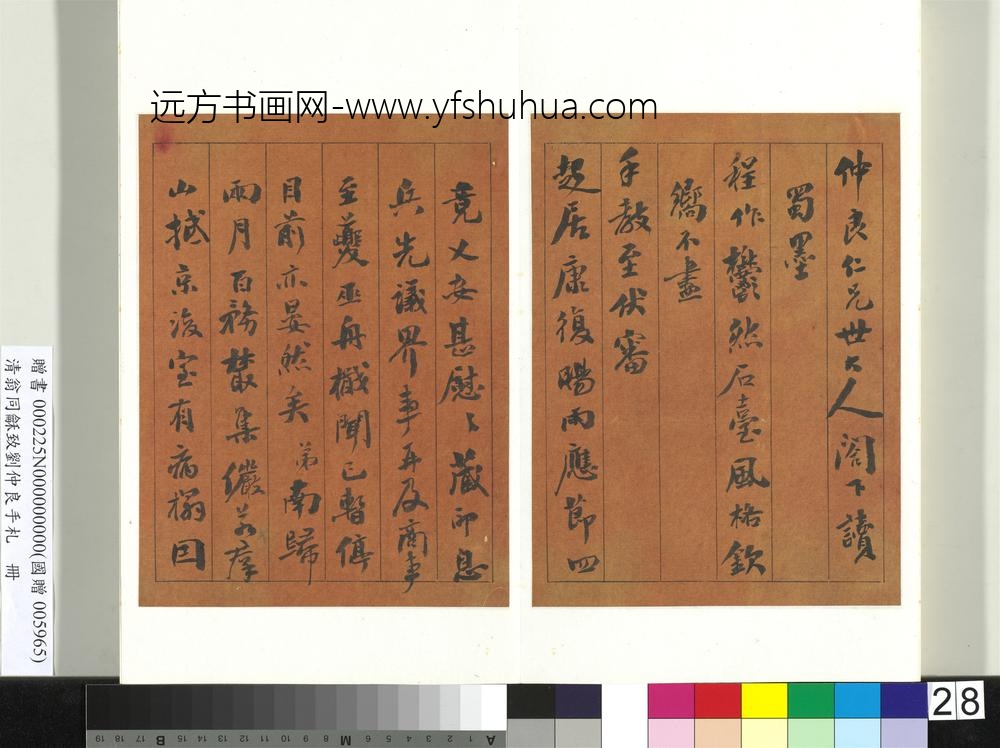 远方书画网-www.yfshuhua.com
仲良仁兄世大人閣下讀
蜀墨
程作鬱然石臺風格欽
嚮不盡
手教至伏審
起居康復暘雨應節四
竟乂安甚慰〻藏印息
兵先議界事再及商事
至夔巫舟檝聞已暫停
目前亦晏然矣弟南歸
兩月百務叢集儼若
山抵京後室有病榻回
贈書 000225N000000000(國贈 005965)
清翁同龢致劉仲良手札 冊
28
19 18 17 16 15 B 14 13 12 11 10 9 8 M 7 6 5 4 3 2 1 A